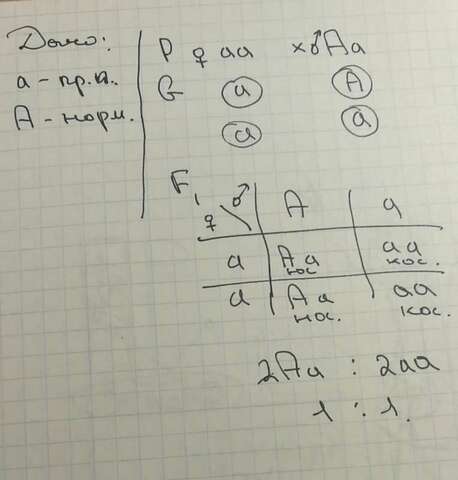 Дано:
а - пр.п.
А - норм.
P ♀ аа × ♂ Аа
G а А
а а
F₁ ♂ А а
♀
а Аа аа
нос кос.
а Аа аа
нос. кос.
2Аа : 2аа
1 : 1.